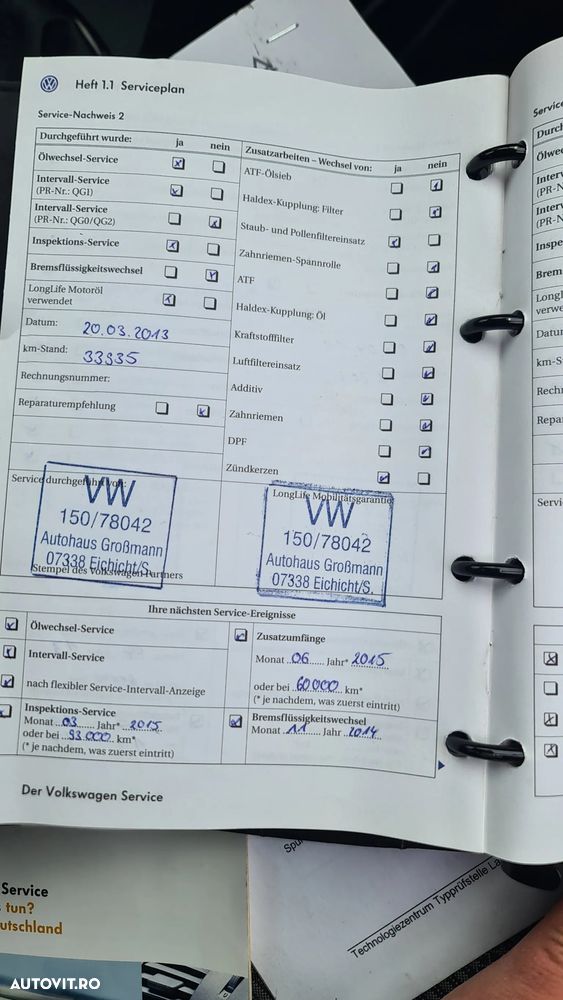 Heft 1.1 Serviceplan
Service-Nachweis 2
Durchgeführt wurde: ja nein
Ölwechsel-Service
Intervall-Service
(PR-Nr.: QG1)
Intervall-Service
(PR-Nr.: QG0/QG2)
Inspektions-Service
Bremsflüssigkeitswechsel
LongLife Motoröl
verwendet
Datum: 20.03.2013
km-Stand: 33335
Rechnungsnummer:
Reparaturempfehlung
Zusatzarbeiten – Wechsel von: ja nein
ATF-Ölsieb
Haldex-Kupplung: Filter
Staub- und Pollenfiltereinsatz
Zahnriemen-Spannrolle
ATF
Haldex-Kupplung: Öl
Kraftstofffilter
Luftfiltereinsatz
Additiv
Zahnriemen
DPF
Zündkerzen
Service durchgeführt von:
VW
150/78042
Autohaus Großmann
07338 Eichicht/S.
Stempel des Volkswagen Partners
LongLife Mobilitätsgarantie
VW
150/78042
Autohaus Großmann
07338 Eichicht/S.
Ihre nächsten Service-Ereignisse
Ölwechsel-Service
Intervall-Service
nach flexibler Service-Intervall-Anzeige
Inspektions-Service
Monat 03 Jahr* 2015
oder bei 93000 km*
(* je nachdem, was zuerst eintritt)
Zusatzumfänge
Monat 06 Jahr* 2015
oder bei 60000 km*
(* je nachdem, was zuerst eintritt)
Bremsflüssigkeitswechsel
Monat 11 Jahr 2014
Der Volkswagen Service
Service
tun?
utschland
Technologiezentrum Typprüfstelle La
AUTOVIT.RO